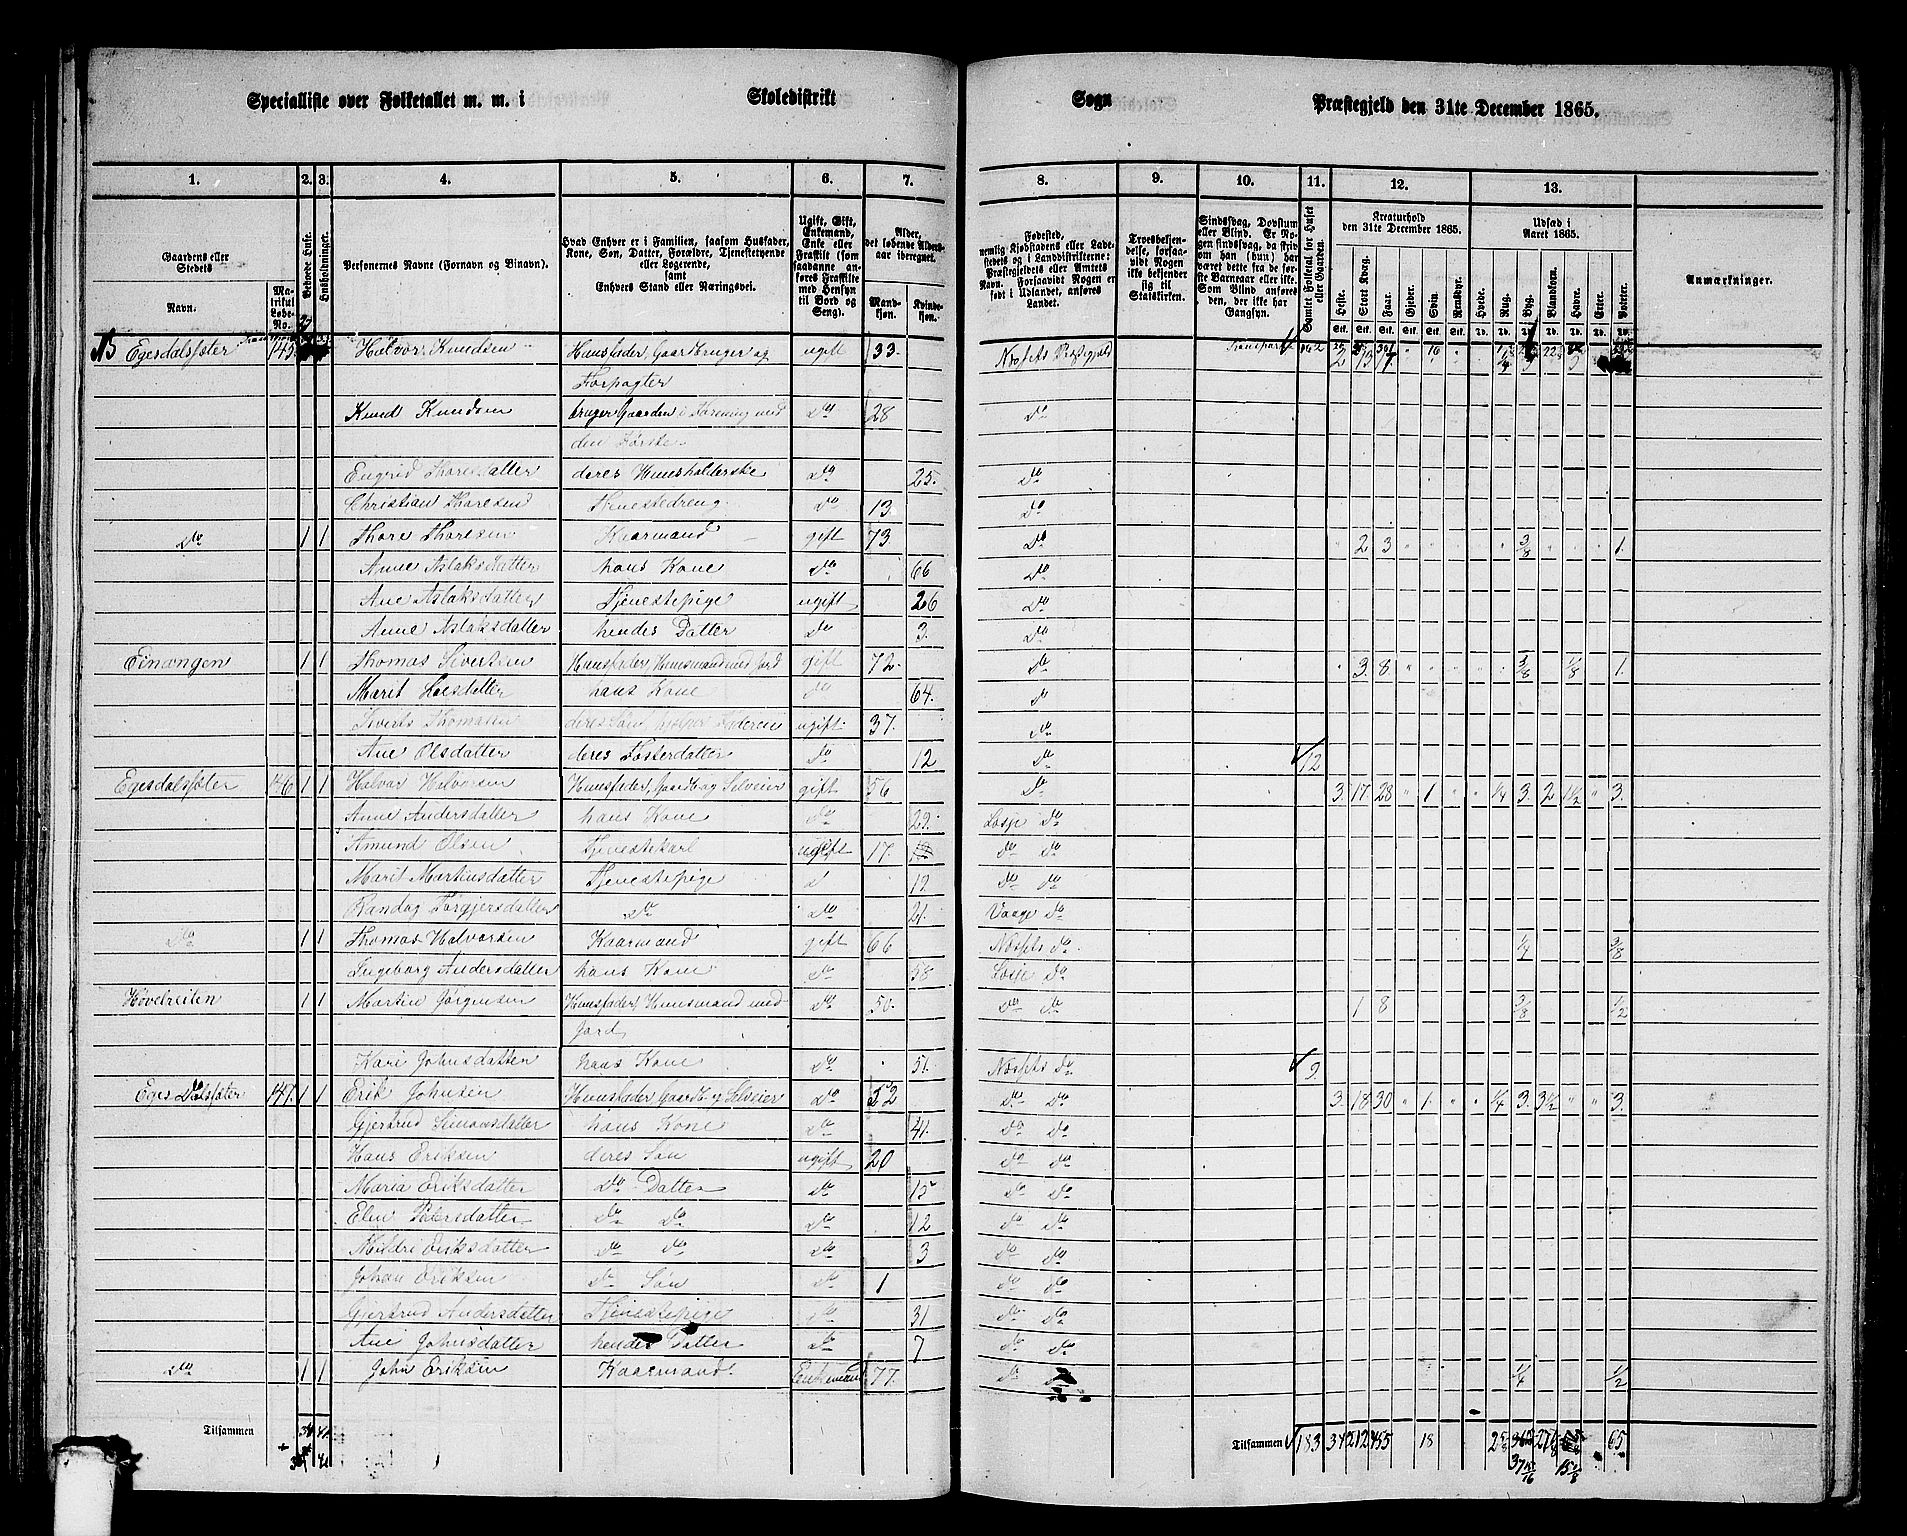 Specialliste over Folketallet m. m. i Skoledistrikt Sogn Præstegjeld den 31te December 1865.
1. 2. 3. 4. 5. 6. 7. 8. 9. 10. 11. 12. 13.
Gaardens eller Stedets Navn. Matrikul Løbe-No. Bebøede Huse. Husholdninger. Personernes Navne (Fornavn og Binavn). Hvad Enhver er i Familien, saasom Husfader, Kone, Søn, Datter, Forældre, Tjenestetyende eller Logerende, samt Enhvers Stand eller Næringsvei. Ugift, Gift, Enkemand, Enke eller Fraskilt (som saadanne anføres Fraskilte med Hensyn til Bord og Seng). Alder, det løbende Aldersaar iberegnet. Mandkjøn. Kvindekjøn.
Fødested, nemlig Kjøbstadens eller Ladestedets og i Landdistrikterne: Præstegjeldets eller Amtets Navn. Forsaavidt Nogen er født i Udlandet, anføres Landet. Troesbekjendelse, forsaavidt Nogen ikke bekjender sig til Statskirken. Sindssvag, Døvstum eller Blind. Er Nogen sindssvag, da skriv om han (hun) har været dette fra de første Barneaar eller ikke. Som Blind anføres den, der ikke har Gangsyn. Samlet Folketal for Huset eller Gaarden. Kreaturhold den 31te December 1865. Udsæd i Aaret 1865. Anmærkninger.
Heste. Stort Kvæg. Faar. Gjeder. Svin. Rensdyr. Hvede. Rug. Byg. Blandkorn. Havre. Erter. Poteter.
Egesdalsæter 145 Halvor Knudsen Huusfader, Gaardbruger og ugift 33. Næssets Præstegjeld Transport 162 2 13 17
Forpagter
Knud Knudsen bruger Gaarden i Forening med do 28 do
den Første
Engrid Thoresdatter deres Huusholderske do 25. do
Christian Thoresen Tjenestedreng do 13 do
do 1 1 Thore Thoresen Kaarmand gift 73 do 2 3 3/8 1.
Anne Aslaksdatter hans Kone do 66 do
Ane Aslaksdatter Tjenestepige ugift 26 do
Anne Aslaksdatter hendes Datter do 3. do
Einængen 1 1 Thomas Sivertsen Huusfader, Huusmand med Jord gift 72. do 3. 8. 3/8 1/8 1.
Marit Larsdatter hans Kone do 64. do
Siverts Thomasen deres Søn, hjelper Faderen ugift 37. do
Ane Olsdatter deres Fosterdatter do 12 do 12
Egesdalsæter 146 1 1 Halvor Halvorsen Huusfader, Gaardb og Selveier gift 56 do 3. 17. 28 1 1/4 3. 2 1 1/2 3.
Anne Andersdatter hans Kone do 29. Lesje do
Amund Olsen Tjenestekarl ugift 17. do do
Marit Martinusdatter Tjenestepige do 12 do do
Randog Torgjersdatter do do 21. Vaage do
do 1 1 Thomas Halvorsen Kaarmand gift 66 Næssets do 1/4 3/8
Ingeborg Andersdatter hans Kone do 58 Lesje do
Høvelreiten 1 1 Martin Jørgensen Huusfader, Huusmand med do 50. do do 1 8 3/8 1/2
Jord
Kari Johnsdatter hans Kone do 51. Næssets do 9
Egesdalsæter 147. 1 1 Erik Johnsen Huusfader, Gaardb. og Selveier do 52 do do 3. 18. 30 1. 1/4 3. 3 1/2 3.
Gjertrud Simonsdatter hans Kone do 41. do do
Hans Eriksen deres Søn ugift 20 do do
Maria Eriksdatter do Datter do 15 do do
Elen Pedersdatter do do do 12 do do
Mildri Eriksdatter do do do 3 do do
Johan Eriksen do Søn do 1 do do
Gjertrud Andersdatter Tjenestepige do 31 do do
Ane Johnsdatter hendes Datter do 7 do do
do 1 1 John Eriksen Kaarmand. Enkemand 77. do do 1/4 1/2
Tilsammen Tilsammen 183 34 212 455 18 65